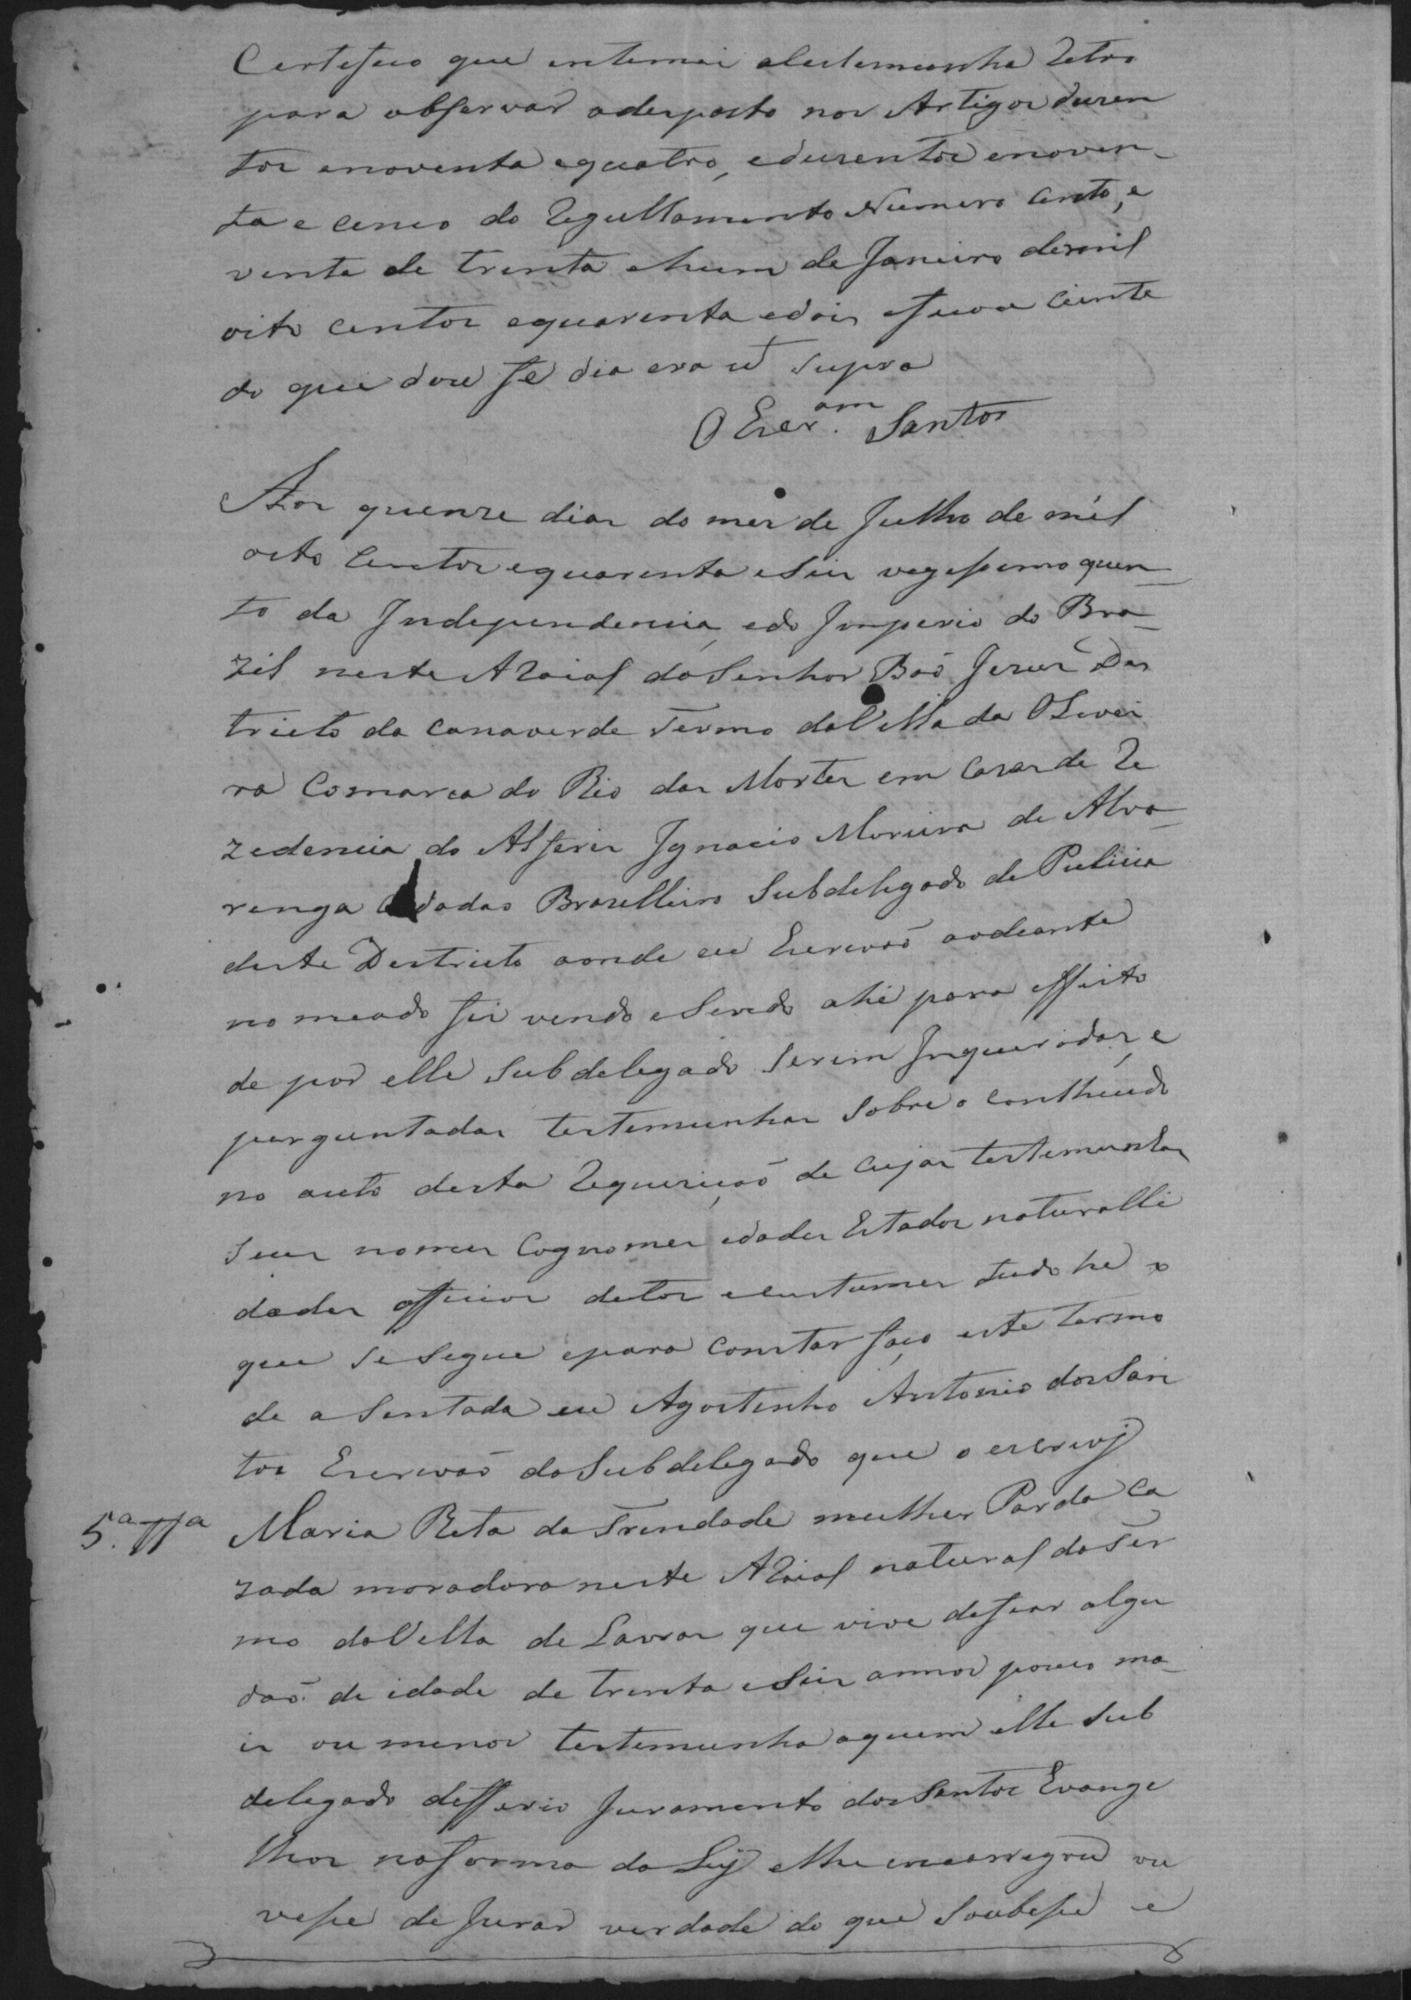 Certefico que entemei atestemunha Retro
para observar odesposto nos Artigos duzen
tos enoventa equatro, eduzentos enoven-
ta e cenco do Regullamento Numero Cento, e
vente de trenta ehum de Janeiro de mil
oito centos equarenta edois eficou Ciente
do que dou fé dia era ut Supra
O Escr.am Santos
Aos quenze dias do mes de Julho de mil
oito Centos equarenta eSeis vegessimo quen-
to da Independencia, edo Imperio do Bra-
zil neste ARaial do Senhor Bão Jezus Des
tricto da Canaverde Termo da Villa da OLivei
ra Comarca do Rio das Mortes em Cazas de Re
zedencia do Alferes Ignacio Moreira de Alva-
renga Cidadao Brazilleiro Subdelegado de Pulicia
deste Destricto aonde eu Escrivaõ aodeante
nomeado fui vendo eSendo ahi para effeito
de por elle Subdelegado Serem Inqueridas, e
perguntadas testemunhas Sobre o conthiudo
no auto desta Requeriçaõ de cujas testemunhas
Seus nomes Cognomes edades Estados naturalli
dades officios detos ecustumes tudo he o
que se Segue epara Constar faço este Termo
de aSentada eu Agostinho Antonio dos San
tos Escrivaõ do Subdelegado que o escrevj
5.a TTa Maria Rita da Trendade mulher Parda Ca
zada moradora neste ARaial natural do Ter
mo da Villa de Lavras que vive defiar algu
daõ de idade de trenta eSeis annos pouco ma-
is ou menos testemunha aquem elle Sub
delegado defferio Juramento dos Santos Evange
lhos naforma da Ley elhe encarregou ou
vesse de Jurar verdade do que Soubesse e